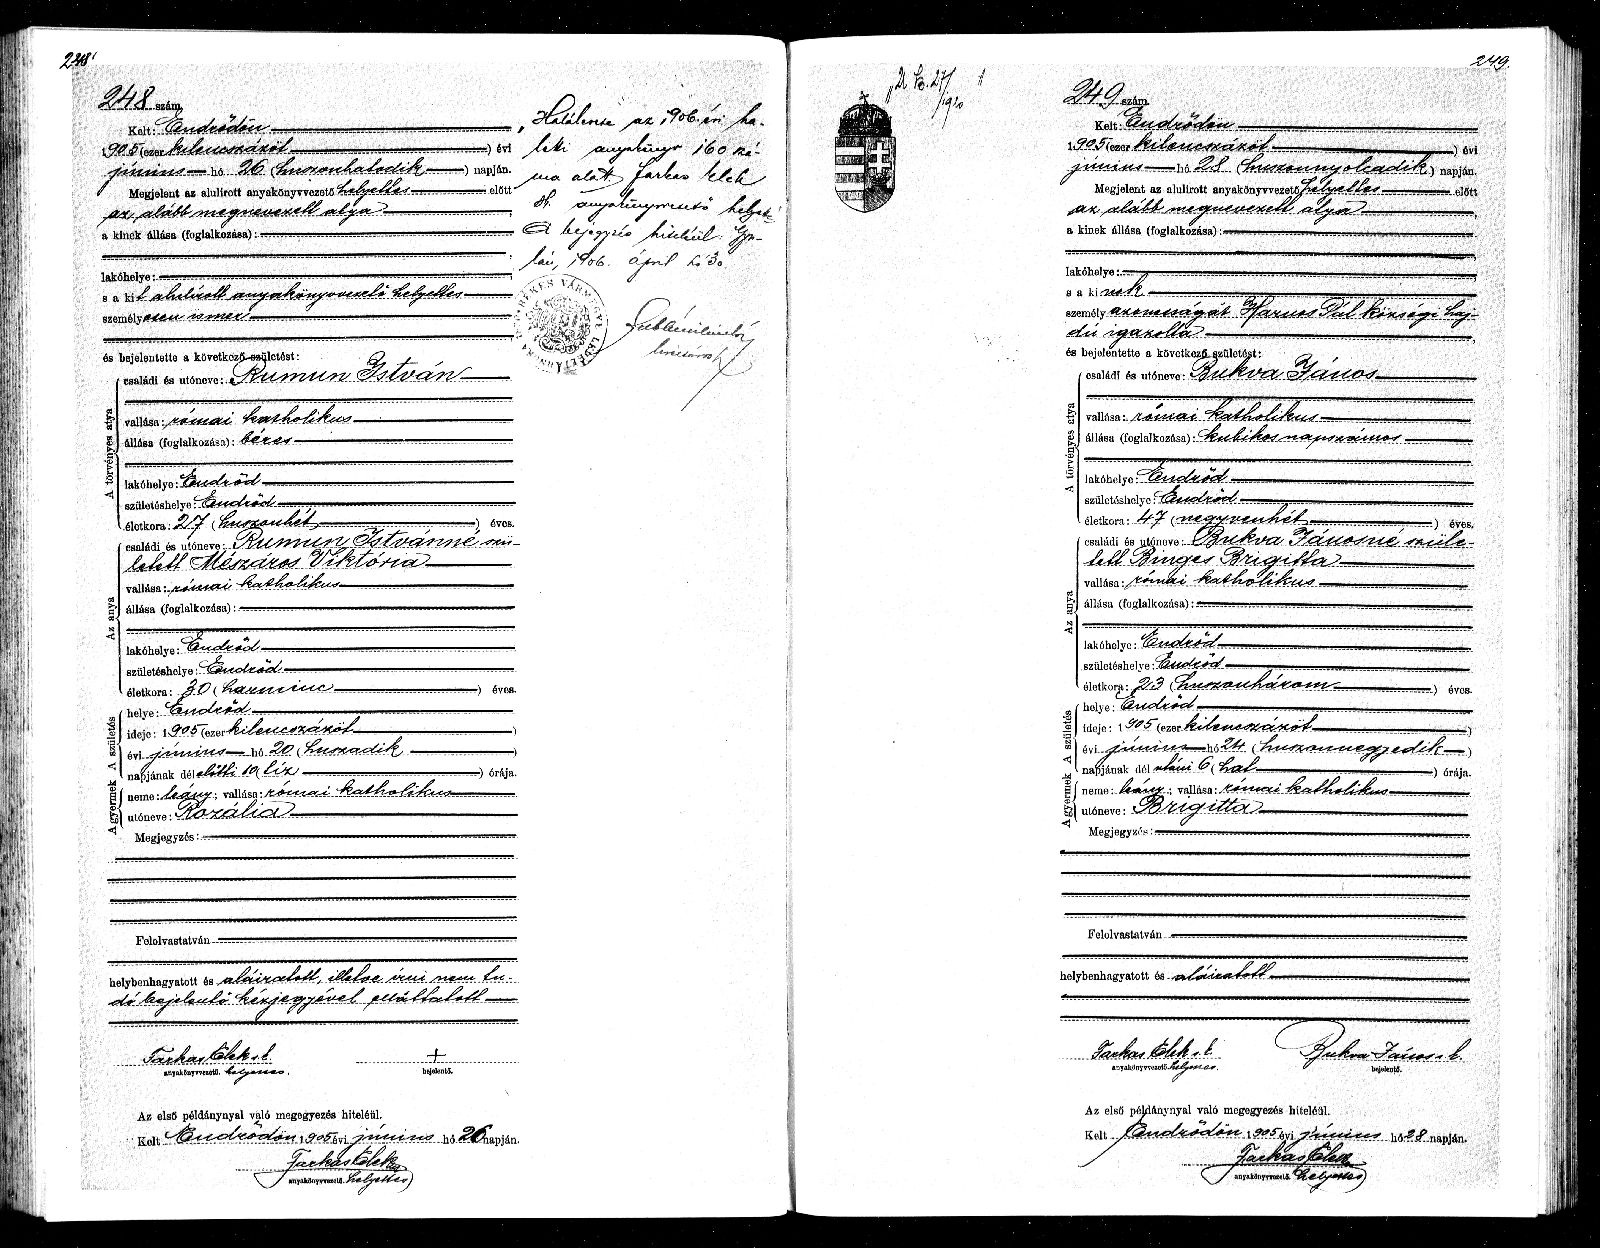 248
248 szám.
Kelt: Endrődön
1905 (ezer kilencszázöt) évi
június hó 26 (huszonhatodik) napján.
Megjelent az alulirott anyakönyvvezető helyettes előtt
az alább megnevezett atya
a kinek állása (foglalkozása):
lakóhelye:
s a kit alulírott anyakönyvvezető helyettes
személyesen ismer
és bejelentette a következő születést:
A törvényes atya
családi és utóneve: Rumun István
vallása: római katholikus
állása (foglalkozása): béres
lakóhelye: Endrőd
születéshelye: Endrőd
életkora: 27 (huszonhét) éves.
Az anya
családi és utóneve: Rumun Istvánné szü-
letett Mészáros Viktória
vallása: római katholikus
állása (foglalkozása):
lakóhelye: Endrőd
születéshelye: Endrőd
életkora: 30 (harminc) éves.
A születés
helye: Endrőd
ideje: 1905 (ezer kilencszázöt)
évi június hó 20 (huszadik)
napjának dél előtti 10 (tíz) órája.
A gyermek
neme: leány; vallása: római katholikus
utóneve: Rozália
Megjegyzés:
Felolvastatván
helybenhagyatott és aláiratott, illetve írni nem tu-
dó bejelentő kézjegyével elláttatott
Farkas Elek s. k. +
anyakönyvvezető. helyettes. bejelentő.
Az első példánynyal való megegyezés hiteléül.
Kelt Endrődön 1905 évi június hó 26 napján.
Farkas Elek
anyakönyvvezető. helyettes
„Halálesete az 1906. évi ha-
lotti anyakönyv 160 szá-
ma alatt. Farkas Elek
sk. anyakönyvvezető helyett.
A bejegyzés hiteléül. Gyu-
lán, 1906. április hó 30.
BÉKÉS VÁRMEGYE LEVÉLTÁRNOKA
249.
249 szám.
Kelt: Endrődön
1905 (ezer kilencszázöt) évi
június hó 28 (huszonnyolcadik) napján.
Megjelent az alulirott anyakönyvvezető helyettes előtt
az alább megnevezett atya
a kinek állása (foglalkozása):
lakóhelye:
s a kinek
személyazonosságát Harnos Pál községi haj-
dú igazolta
és bejelentette a következő születést:
A törvényes atya
családi és utóneve: Bukva János
vallása: római katholikus
állása (foglalkozása): kubikos napszámos
lakóhelye: Endrőd
születéshelye: Endrőd
életkora: 47 (negyvenhét) éves.
Az anya
családi és utóneve: Bukva Jánosné szüle-
tett Binges Brigitta
vallása: római katholikus
állása (foglalkozása):
lakóhelye: Endrőd
születéshelye: Endrőd
életkora: 23 (huszonhárom) éves.
A születés
helye: Endrőd
ideje: 1905 (ezer kilencszázöt)
évi június hó 24 (huszonnegyedik)
napjának dél utáni 6 (hat) órája.
A gyermek
neme: leány; vallása: római katholikus
utóneve: Brigitta
Megjegyzés:
Felolvastatván
helybenhagyatott és aláiratott
Farkas Elek s. k. Bukva János s. k.
anyakönyvvezető. helyettes. bejelentő.
Az első példánynyal való megegyezés hiteléül.
Kelt Endrődön 1905 évi június hó 28 napján.
Farkas Elek
anyakönyvvezető. helyettes